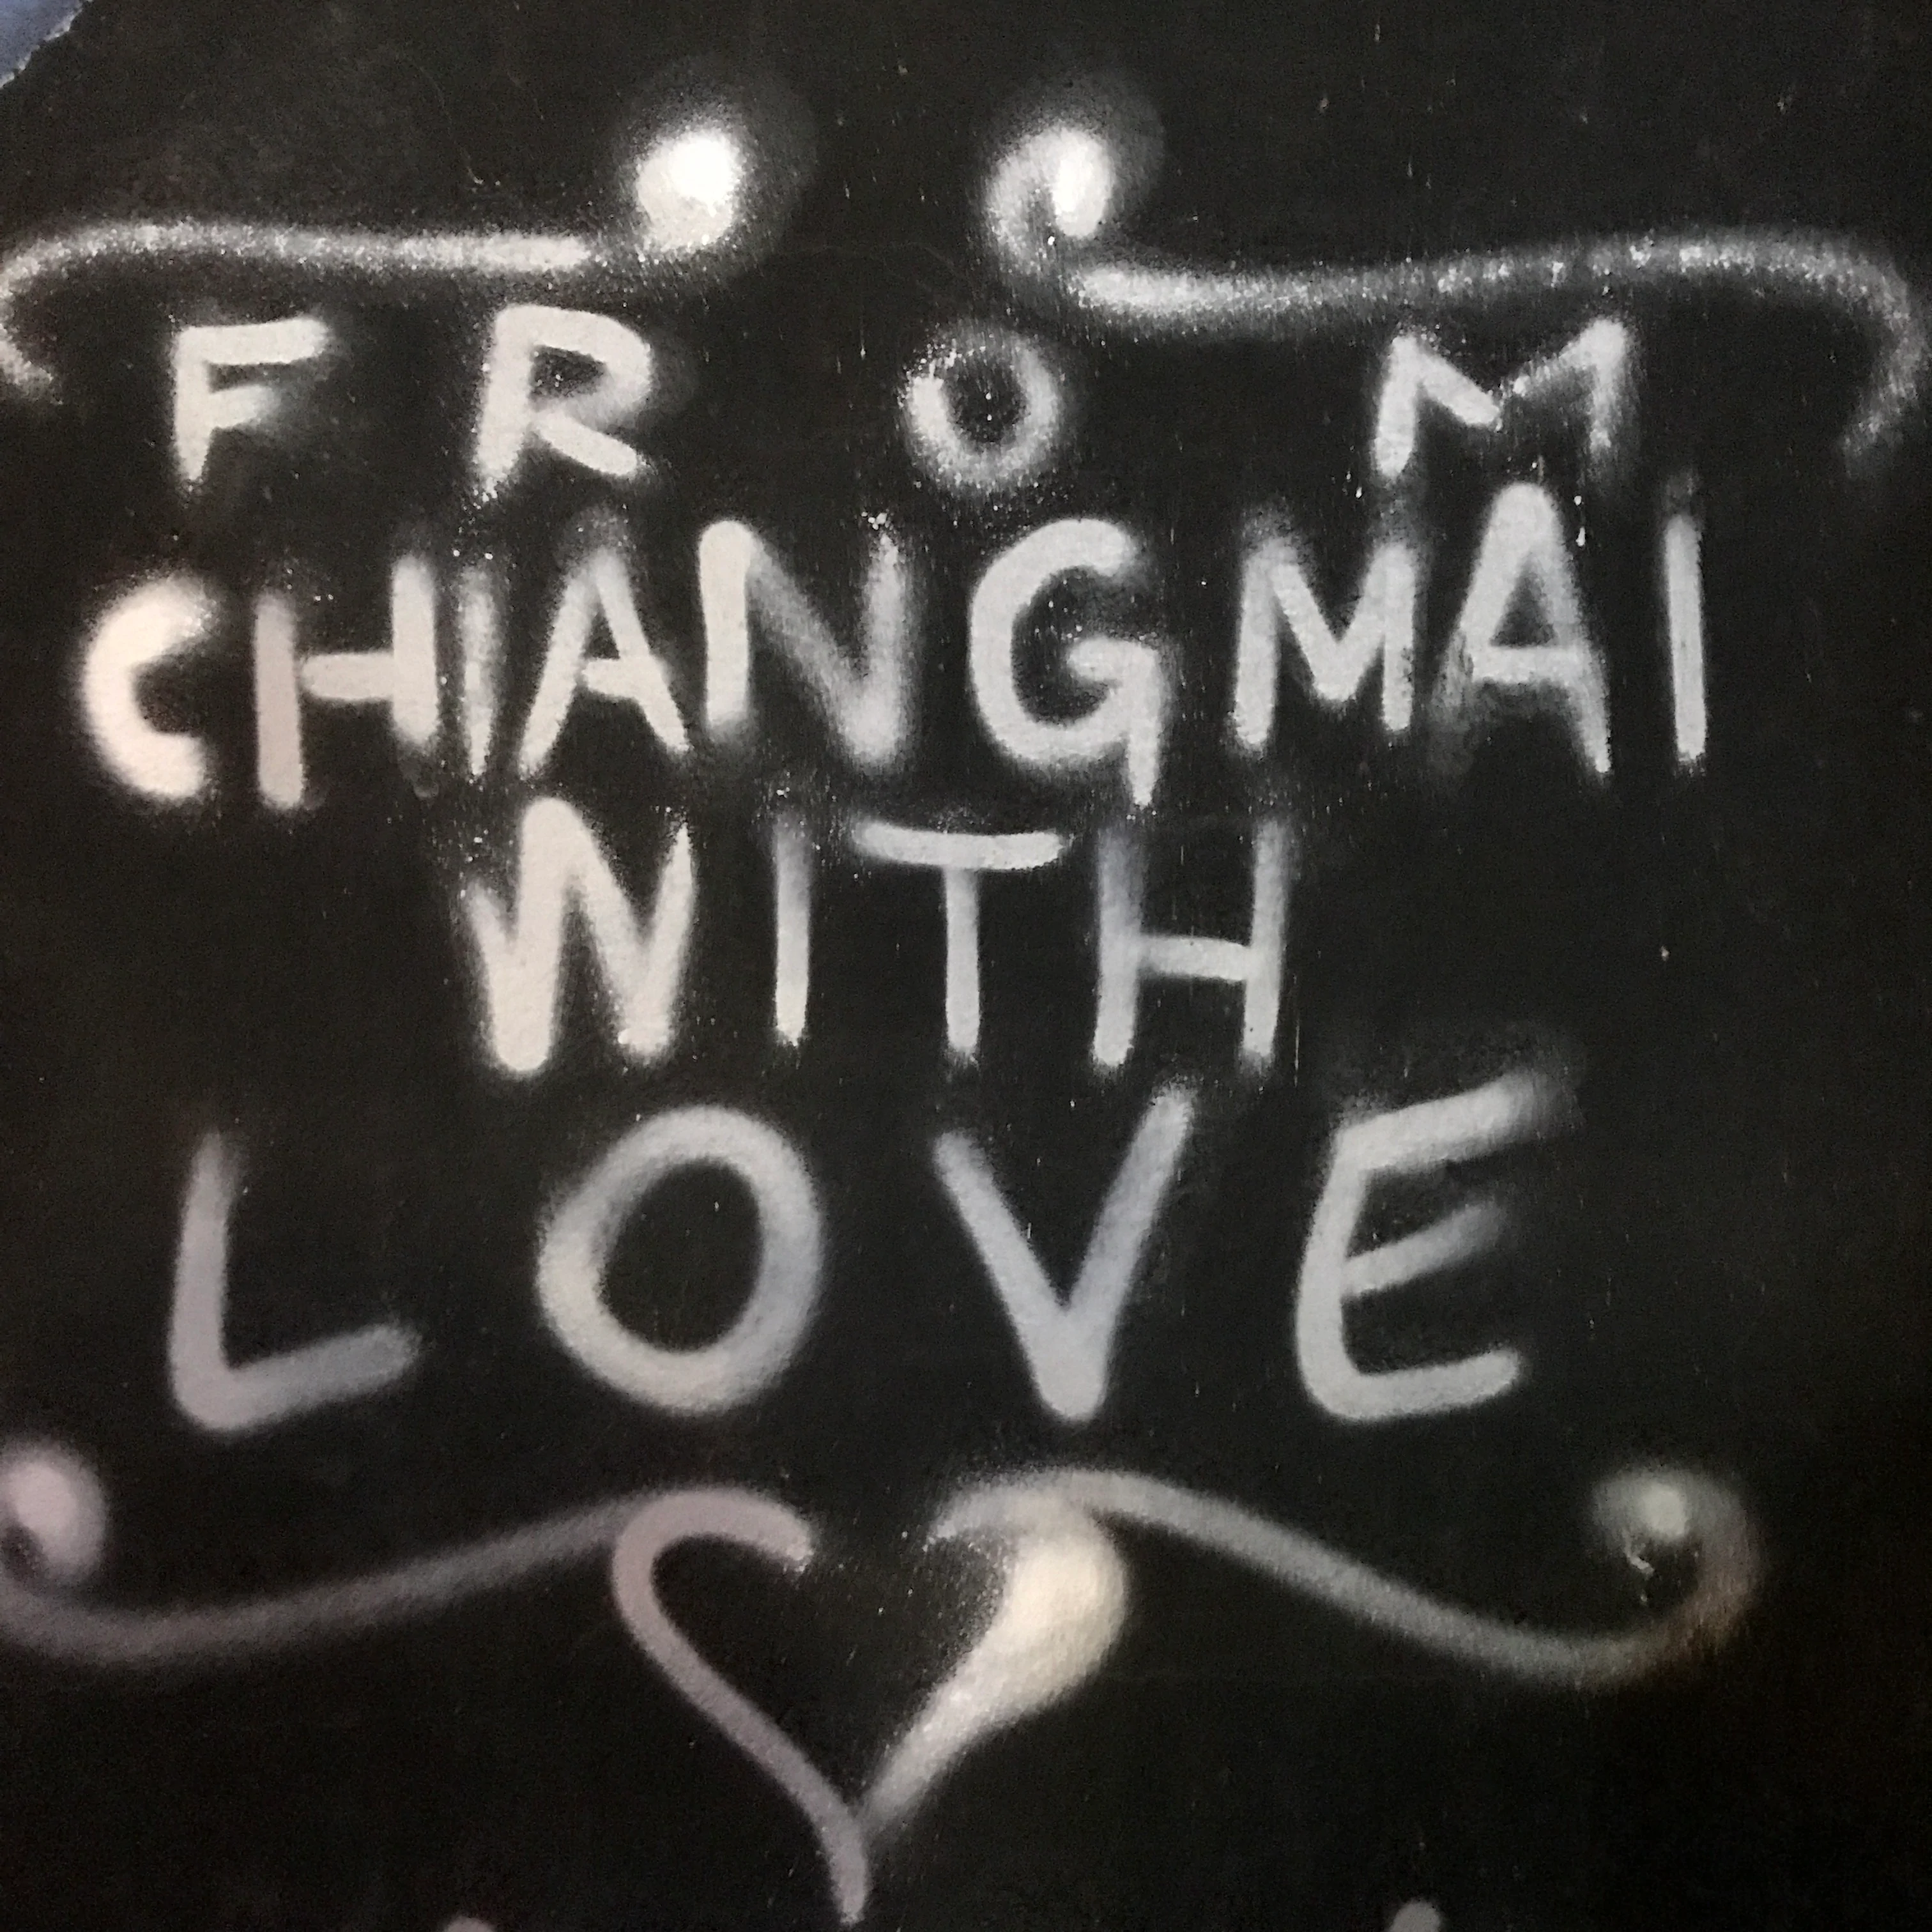 FROM
CHIANGMAI
WITH
LOVE